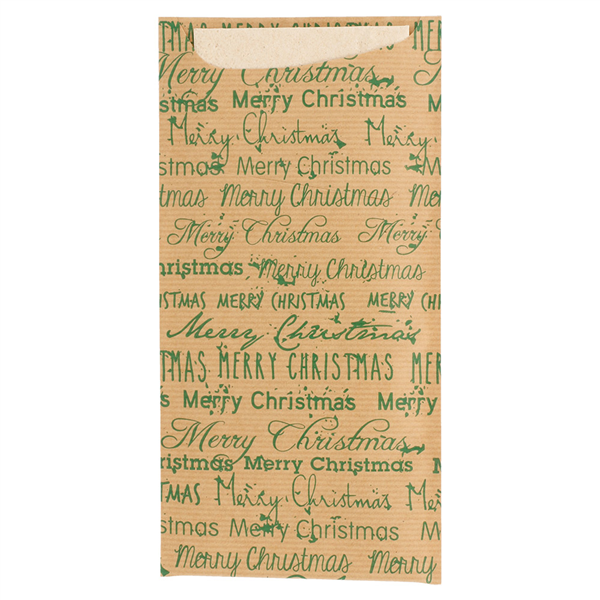 TMAS MERRY CHRISTMAS MER
Merry Christmas
stmas Merry Christmas M
Merry Christmas Merry
stmas Merry Christmas Mer
tmas Merry Christmas M
Merry Christmas Merry
hristmas Merry Christmas
ISTMAS MERRY CHRISTMAS MERRY CH
Merry Christmas
TMAS MERRY CHRISTMAS MER
s Merry Christmas Merry
Merry Christmas
ristmas Merry Christmas M
TMAS Merry Christmas
stmas Merry Christmas Me
Merry Christmas